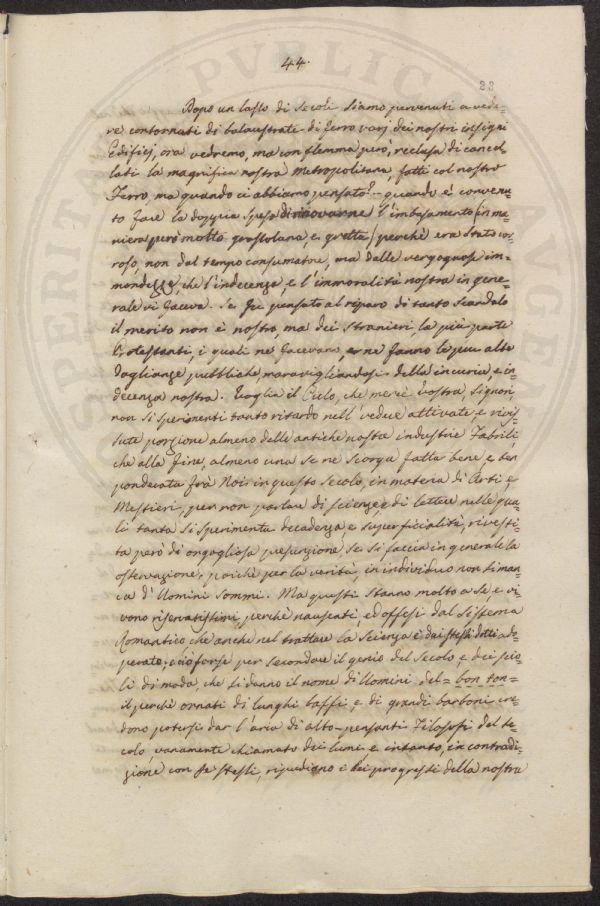 44.
23
Dopo un lasso di secoli siamo pervenuti a vede=
re contornati di balaustrate di ferro varj dei nostri insigni
Edifizj, ora vedremo, ma con flemma però, reclusa di cancel
lati la magnifica nostra Metropolitana, fatti col nostro
Ferro, ma quando ci abbiamo pensato? quando è convenu=
to fare la doppia spesa di rinovarne l'imbasamento (in ma=
niera però molto grossolana, e gretta) perchè era stato cor=
roso, non dal tempo consumatore, ma dalle vergognose im=
mondezze, che l'indecenza, e l'immoralità nostra in gene=
rale vi faceva. Se fu pensato al riparo di tanto scandalo
il merito non è nostro, ma dei stranieri, la più parte
Protestanti, i quali ne facevano, e ne fanno le più alte
doglianze pubbliche, maravigliandosi della incuria, e in=
decenza nostra. Voglia il Cielo, che mercè vostra, Signori,
non si sperimenti tanto ritardo nell'vedere attivate, e rivis=
sute porzione almeno delle antiche nostre industrie Fabrili,
che alla fine, almeno una se ne scorga fatta bene, e ben
ponderata frà Noi in questo secolo, in materia di Arti e
Mestieri, per non parlare di scienze, e di lettere nelle qua=
li tanta si sperimenta decadenza, e superficialità, rivesti=
ta però di orgogliosa presunzione, se si faccia in generale la
osservazione, poichè per la verità, in individuo non siman=
ca d'Uomini sommi. Ma questi stanno molto a se, e vi=
vono riservatissimi, perchè nauseati, ed offesi dal sistema
Romantico che anche nel trattare la scienza è dai stessi dotti ado=
perato, e ciò forse per secondare il genio del secolo, e dei scio=
li di moda, che si danno il nome di Uomini del = bon ton =
il perchè ornati di lunghi baffi, e di grandi barboni cre=
dono potersi dar l'aria di alto-pensanti Filosofi del se=
colo, vanamente chiamato dei lumi, e intanto, in contradi=
zione con se stessi, ripudiano i bei progressi della nostra